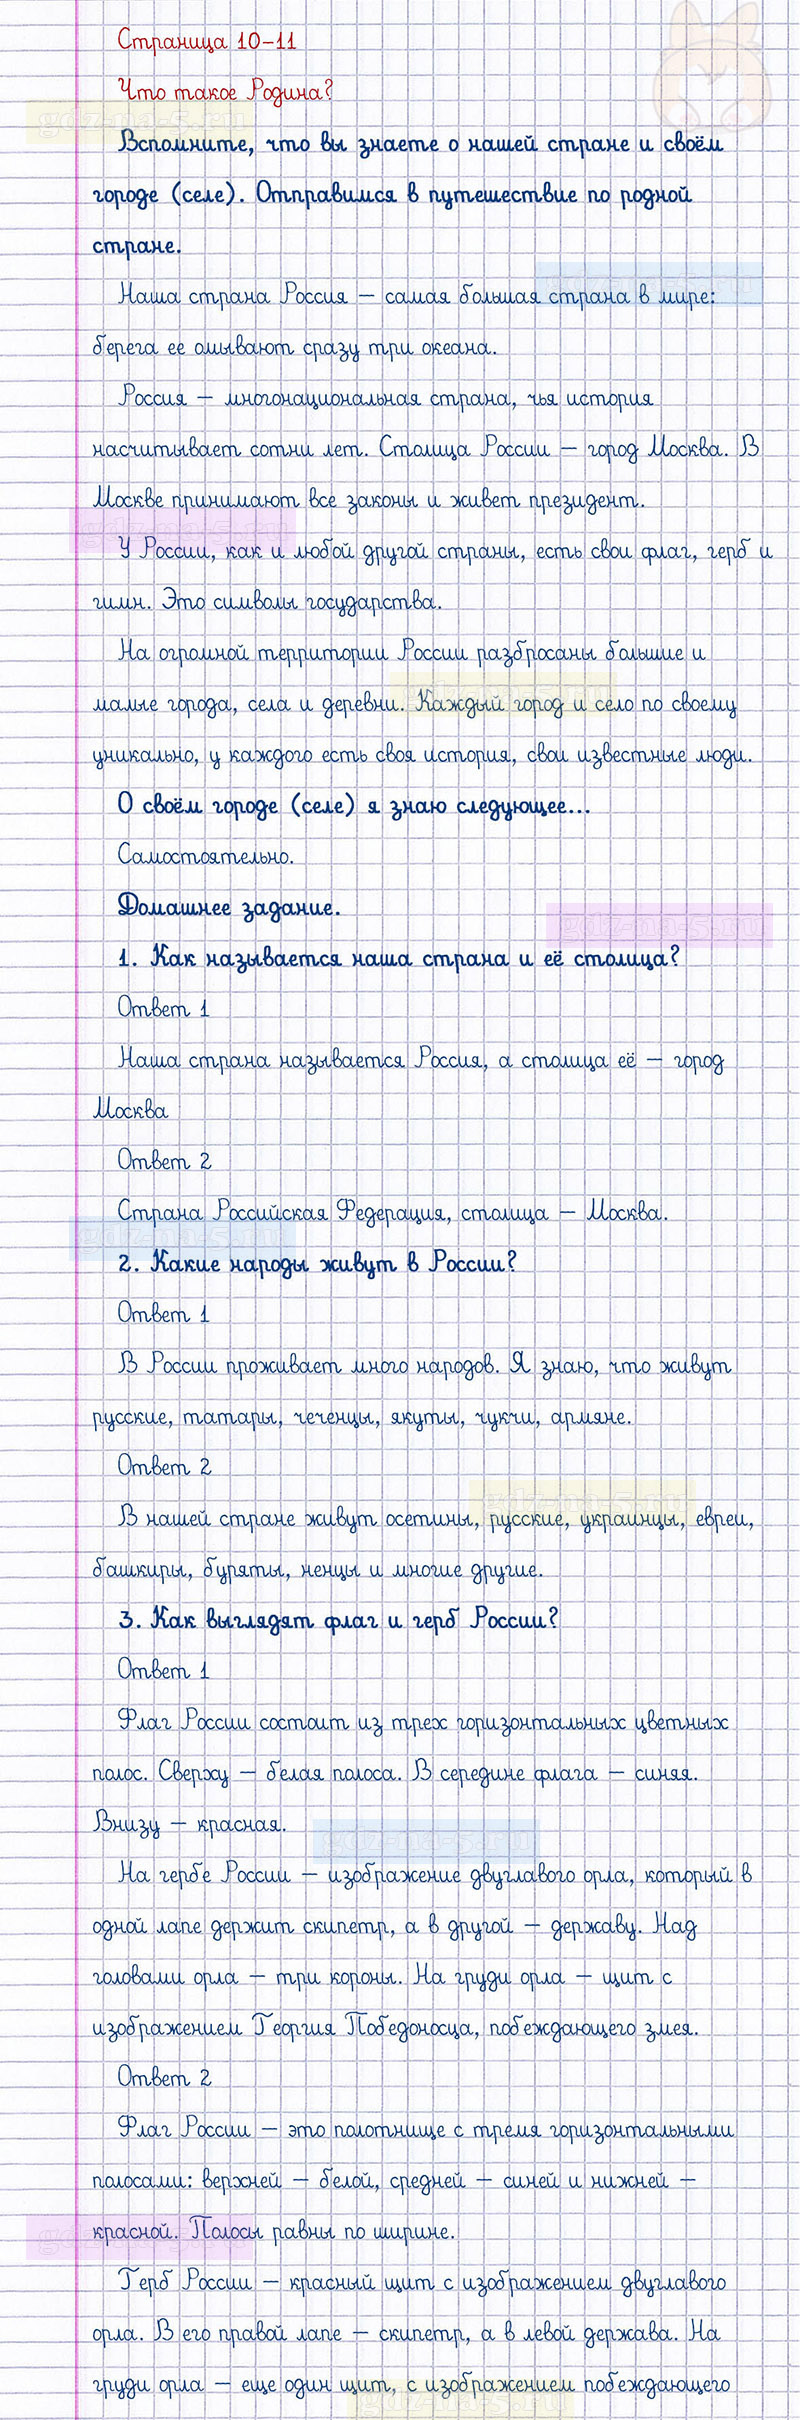 Страница 10-11
Что такое Родина?
gdz-na-5.ru
Вспомните, что вы знаете о нашей стране и своём
городе (селе). Отправимся в путешествие по родной
стране.
gdz-na-5.ru
Наша страна Россия – самая большая страна в мире:
берега ее омывают сразу три океана.
Россия – многонациональная страна, чья история
насчитывает сотни лет. Столица России – город Москва. В
Москве принимают все законы и живет президент.
gdz-na-5.ru
У России, как и любой другой страны, есть свои флаг, герб и
гимн. Это символы государства.
На огромной территории России разбросаны большие и
gdz-na-5.ru
малые города, села и деревни. Каждый город и село по своему
уникально, у каждого есть своя история, свои известные люди.
О своём городе (селе) я знаю следующее...
Самостоятельно.
Домашнее задание.
gdz-na-5.ru
1. Как называется наша страна и её столица?
Ответ 1
Наша страна называется Россия, а столица её – город
Москва
Ответ 2
Страна Российская Федерация, столица – Москва.
gdz-na-5.ru
2. Какие народы живут в России?
Ответ 1
В России проживает много народов. Я знаю, что живут
русские, татары, чеченцы, якуты, чукчи, армяне.
Ответ 2
gdz-na-5.ru
В нашей стране живут осетины, русские, украинцы, евреи,
башкиры, буряты, ненцы и многие другие.
3. Как выглядят флаг и герб России?
Ответ 1
Флаг России состоит из трех горизонтальных цветных
полос. Сверху – белая полоса. В середине флага – синяя.
Внизу – красная.
gdz-na-5.ru
На гербе России – изображение двуглавого орла, который в
одной лапе держит скипетр, а в другой – державу. Над
головами орла – три короны. На груди орла – щит с
изображением Георгия Победоносца, побеждающего змея.
Ответ 2
Флаг России – это полотнище с тремя горизонтальными
полосами: верхней – белой, средней – синей и нижней –
красной. Полосы равны по ширине.
gdz-na-5.ru
Герб России – красный щит с изображением двуглавого
орла. В его правой лапе – скипетр, а в левой держава. На
груди орла – еще один щит, с изображением побеждающего
gdz-na-5.ru